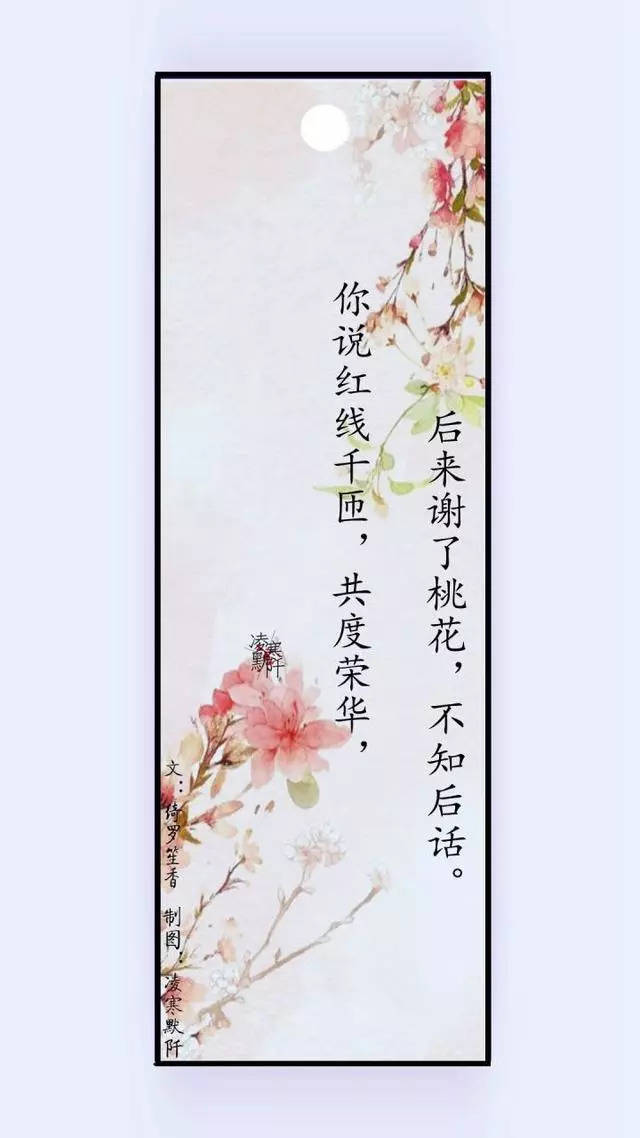 你说红线千匝，共度荣华，
后来谢了桃花，不知后话。
凌寒默阡
文：绮罗笙香 制图：凌寒默阡